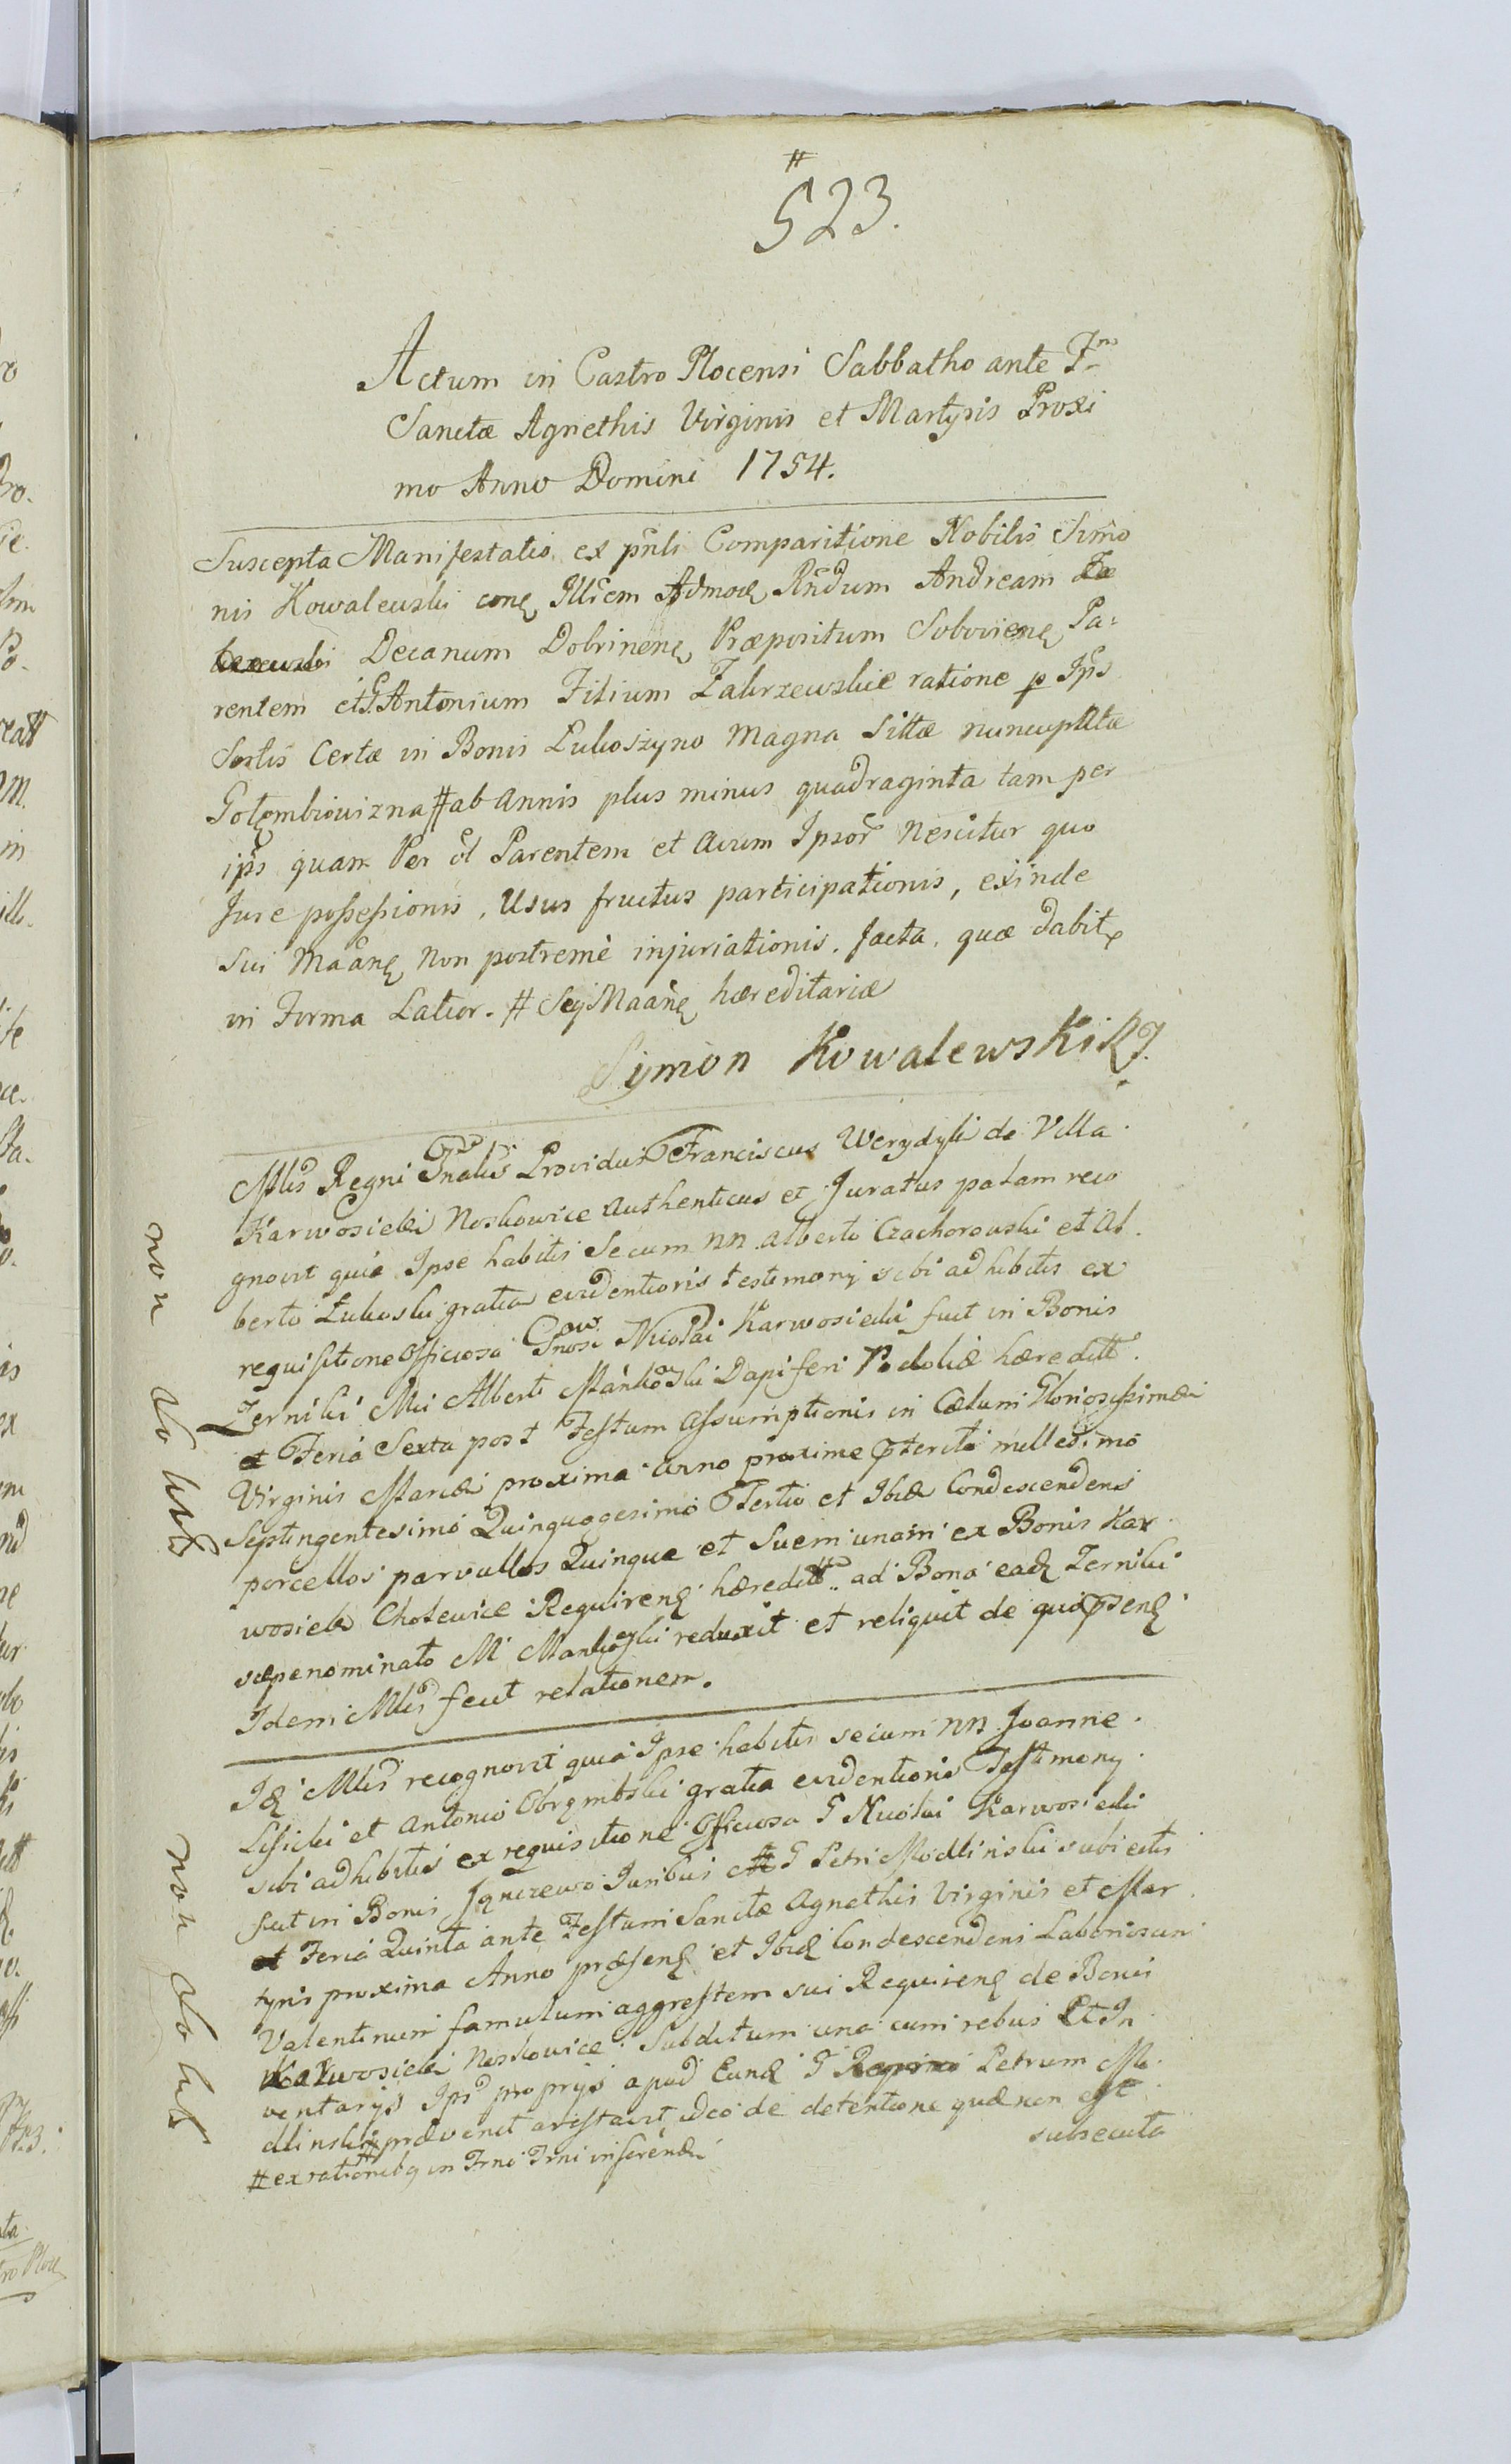 #
523.
Actum in Castro Plocensi Sabbatho ante F
Sanctæ Agnethis Virginis et Martyris Proxi
mo Anno Domini 1754.
Suscepta Manifestatio ex pnli Comparitione Nobilis Simo
nis Kowalewski con Illrem Admod Rndum Andream
Decanum Dobrinen Præpositum Sobovien Pa:
rentem et G Antonium Filium Zakrzewskie ratione p Ips
Sortis Certæ in Bonis Lukoszyno Magna Sittæ nuncupatæ
Gołembiowizna # ab Annis plus minus quadraginta tam per
ips quam Per ol Parentem et Avum Ipsor Nescitur quo
Jure possessionis, Usus fructus participationis, exinde
Sui Maan Non postremè injuriationis. facta, quæ dabit
in Forma Latior. # Sej Maan hæreditariæ
Symon Kowalewski
Mlis Regni Gnalis Providus Franciscus Werydyk de Villa
Karwosieki Noskowice Authenticus et Juratus palam reco
gnovit quia Ipse habitis Secum nn Alberto Czachorowski et Al
berto Lukoski gratia evidentioris testimonij sibi adhibitis ex
requisitione Officiosa Gnosi Nicolai Karwosiecki fuit in Bonis
Zerniki Mci Alberti Mańkoski Dapiferi Podoliæ hæreditt.
Feria Sexta post Festum Assumptionis in Cælum Gloriosissimæ
Virginis Mariæ proxima anno proxime pteritô millesimo
Septingentesimô Quinquagesimô Tertio et Ibid Condescendens
porcellos parvullos Quinque et Suem unam ex Bonis Kar
wosieki Cholewice Requiren hæreditt. ad Bona ead Zerniki
sæpenominato M Mankoski reduxit et reliquit de quo psen
Idem Mlis fecit relationem.
Id Mlis recognovit quia Ipse habitis secum nn Joanne
Lisicki et Antonio Obrembski gratia evidentioris Testimonij
sibi adhibitis ex requisitione Officiosa G Nicolai Karwosiecki
fuit in Bonis Juribus G Petri Modlinski subiectis
Feria Quinta ante Festum Sanctæ Agnethis Virginis et Mar
tyris proxima Anno præsen et Ibid Condescendens Laboriosum
Valentinum famulum aggrestem sui Requiren de Bonis
Karwosieki Noskowice Subditum una cum rebus Et In
ventarijs Ips proprijs apud Eund G Petrum Mo
dlinski # prævenit arestavit ideo de detentione quæ non est
subsecuta
# ex rationib in Trno Trni inserendis
non solut
non solut